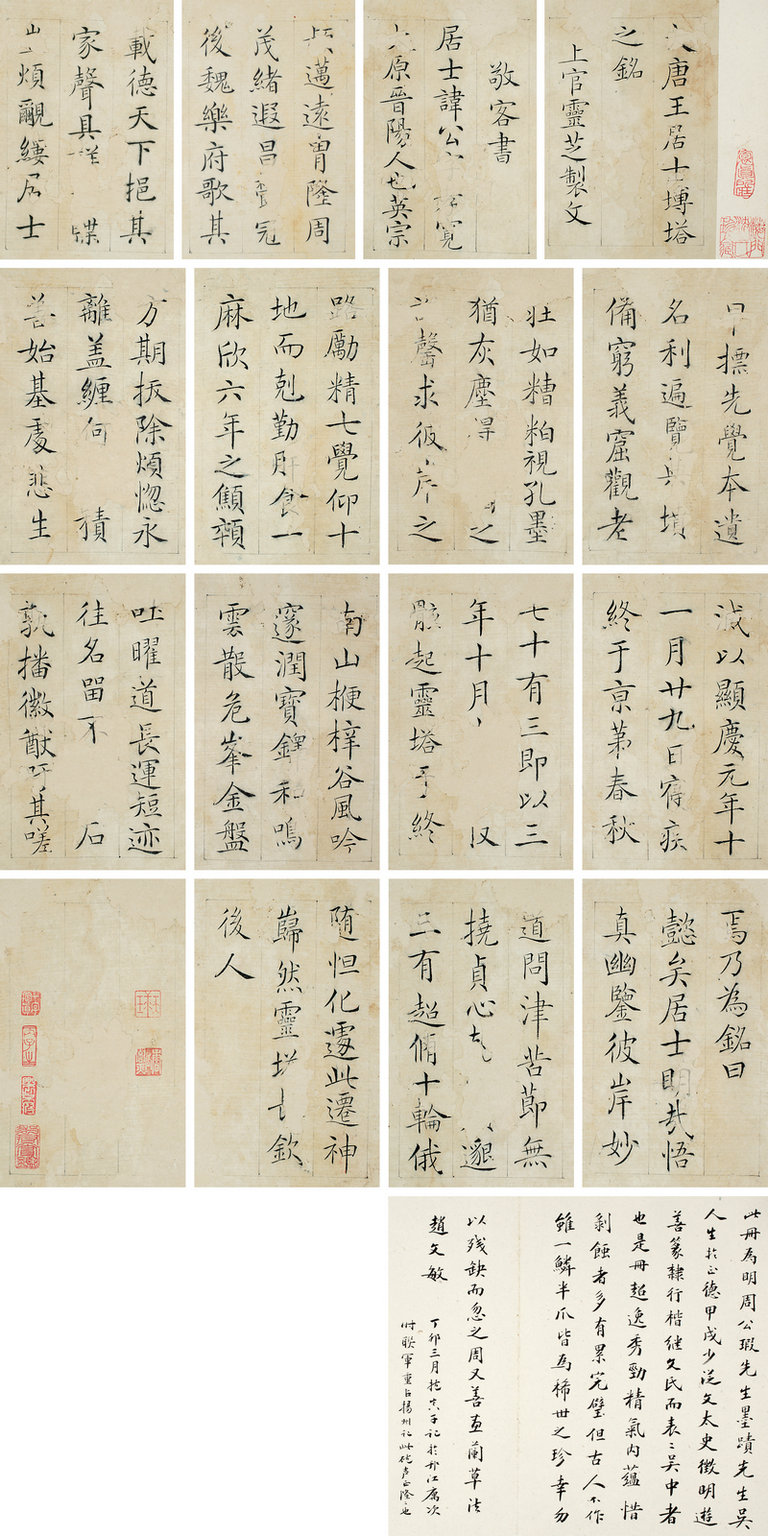 唐王居士塼塔
之銘
上官靈芝製文
敬客書
居士諱公 寬
太原晉陽人也英宗
邁遠冑隆周
茂緒遐昌 冠
後魏樂府歌其
載德天下挹其
家聲具 牒
煩覼縷居士
標先覺本遺
名利遍覽 墳
備窮義窟觀老
莊如糟粕視孔墨
猶灰塵得 之
聲求彼岸之
路勵精七覺仰十
地而剋勤 食一
麻欣六年之顦顇
方期拔除煩惚永
離盖纏何 積
善始基處悲生
滅以顯慶元年十
一月廿九日寢疾
終于京苐春秋
七十有三即以三
年十月 収
骸起靈塔于終
南山楩梓谷風吟
邃澗寶鐸和鳴
雲散危峯金盤
吐曜道長運短迹
往名留不 石
孰播徽猷吁其嗟
焉乃為銘曰
懿矣居士明哉悟
真幽鑒彼岸妙
道問津苦節無
撓貞心 邈
三有超脩十輪俄
隨怛化遽此遷神
巋然靈塔 欽
後人
此冊為明周公瑕先生墨蹟先生吳
人生於正德甲戌少從文太史徵明遊
善篆隸行楷继文氏而表表吳中者
也是冊超逸秀勁精氣内蘊惜
剝蝕者多有累完璧但古人不作
雖一鱗半爪皆為稀世之珍幸勿
以残缺而忽之周又善画蘭草法
趙文敏
丁卯三月 記於邗江寓次
时联軍重占揚州 此砲声正隆也